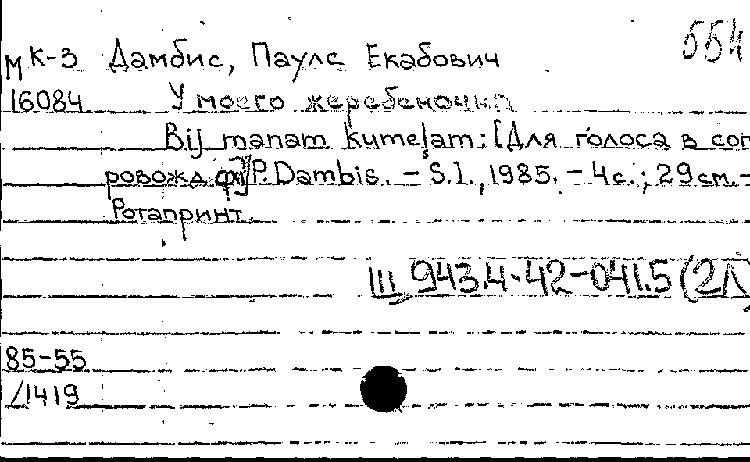 554
М К-3 Дамбис, Паулс Екабович
16084 У моего жеребеночка
Bij manam kumeļam: [Для голоса в соп
ровожд. фп] / P. Dambis. – S.l., 1985. – 4 с.; 29 см. –
Ротапринт.
Ш 943.4-42-041.5 (2Л
85-55
/1419